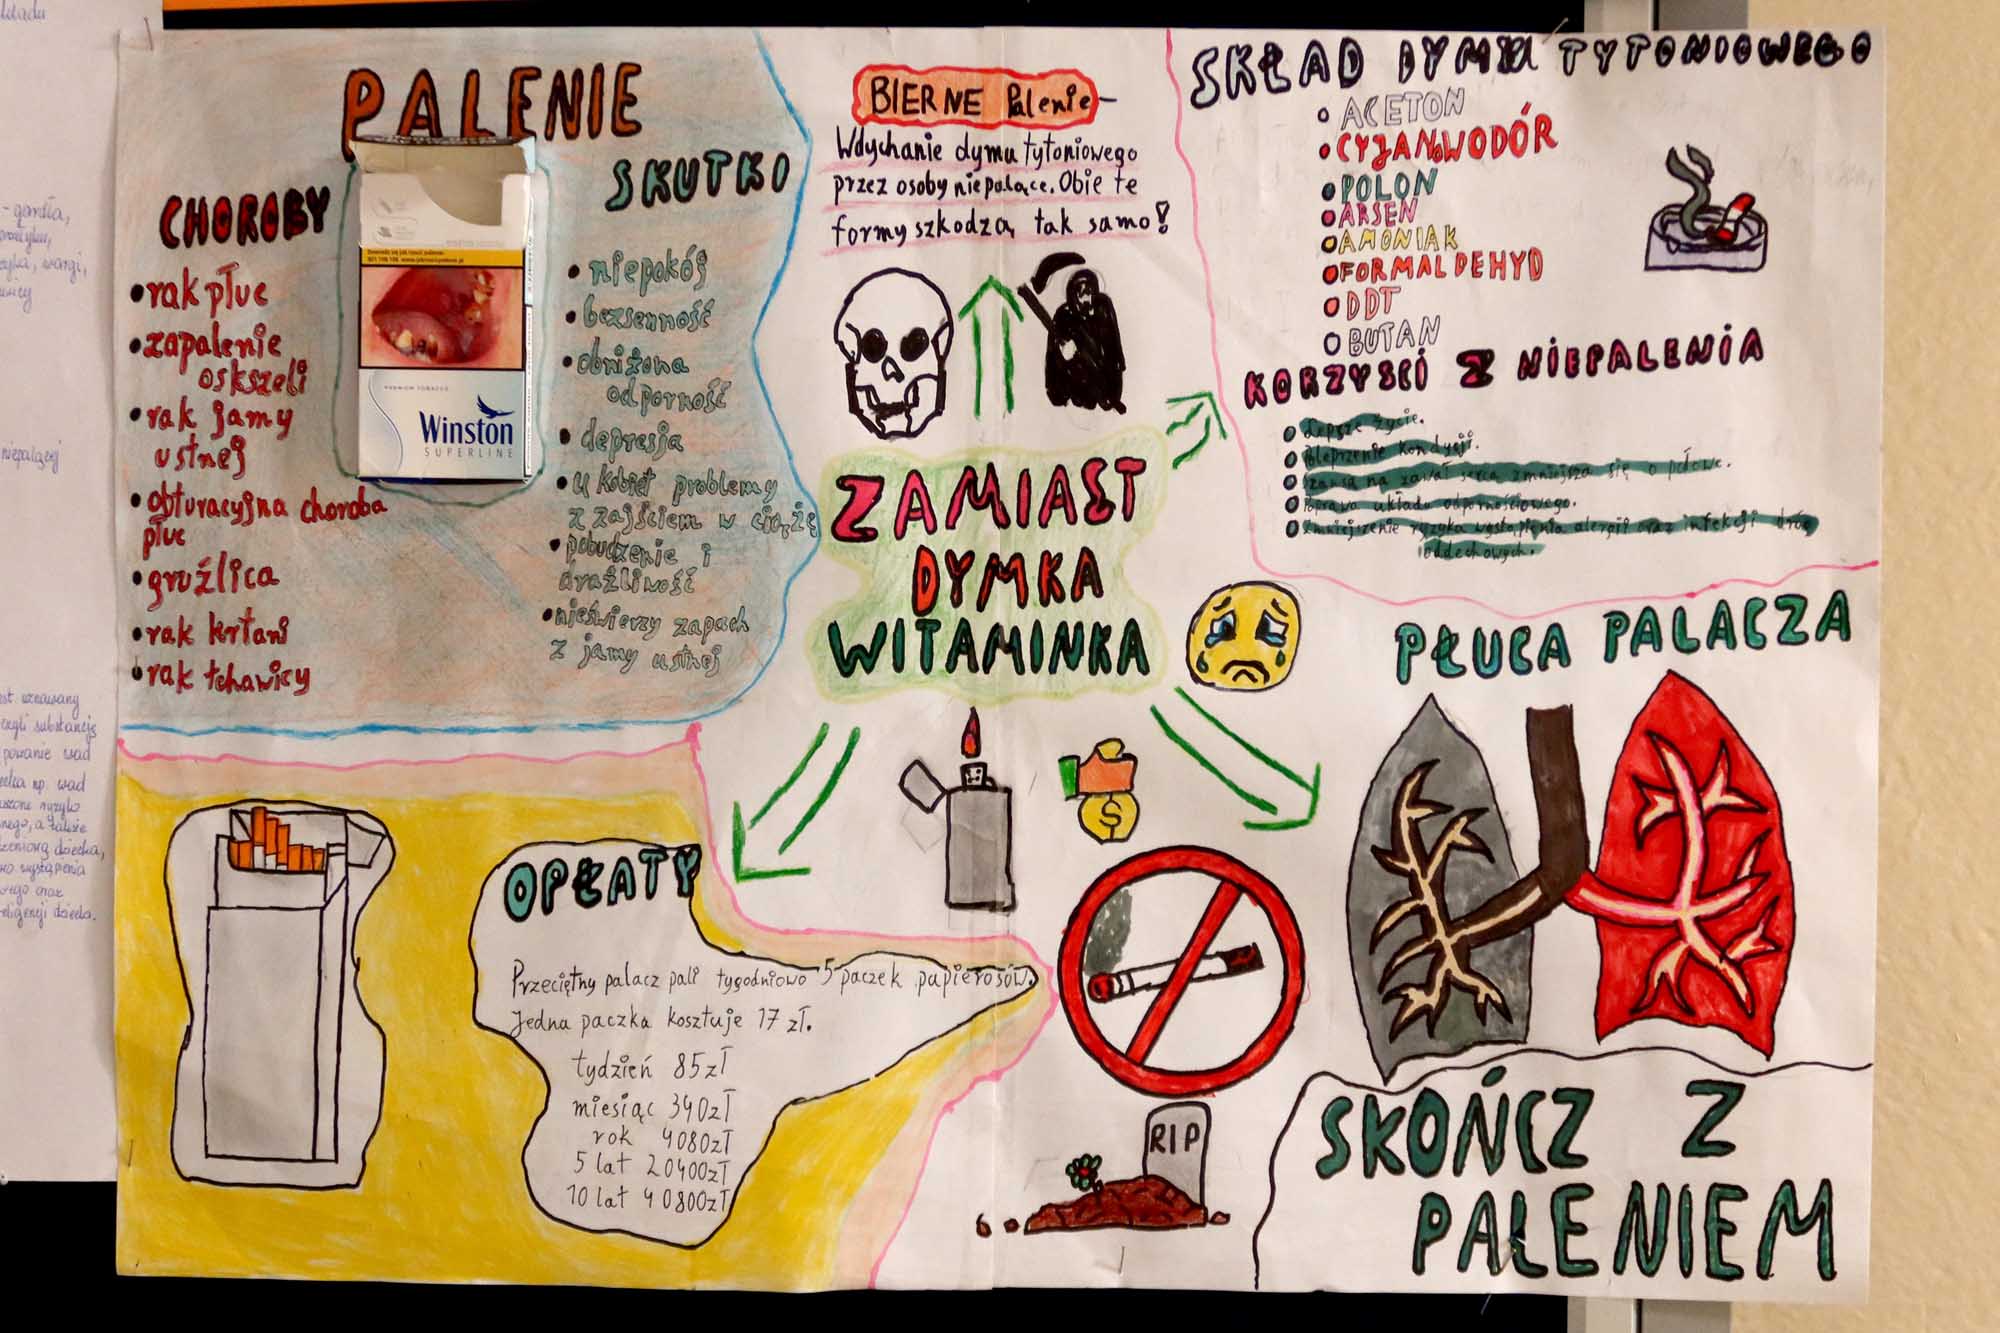 PALENIE
CHOROBY
• rak płuc
• zapalenie
oskszeli
• rak jamy
ustnej
• obturacyjna choroba
płuc
• gruźlica
• rak krtani
• rak tchawicy
Winston
SUPERLINE
SKUTKI
• niepokój
• bezsenność
• obniżona
odporność
• depresja
• u kobiet problemy
z zajściem w ciążę
• pobudzenie i
drażliwość
• nieświerzy zapach
z jamy ustnej
BIERNE Palenie -
Wdychanie dymu tytoniowego
przez osoby niepalące. Obie te
formy szkodzą tak samo!
ZAMIAST
DYMKA
WITAMINKA
SKŁAD DYMU TYTONIOWEGO
ACETON
CYJANOWODÓR
POLON
ARSEN
AMONIAK
FORMALDEHYD
DDT
BUTAN
KORZYSCI Z NIEPALENIA
Lepsze życie.
Poleprzenie kondycji.
Szansa na zawał serca zmniejsza się o połowe.
Poprawa układu odpornościowego.
Zmniejszenie ryzyka wystąpienia alergii oraz infekcji dróg
oddechowych.
PŁUCA PALACZA
OPŁATY
Przeciętny palacz pali tygodniowo 5 paczek papierosów.
Jedna paczka kosztuje 17 zł.
tydzień 85 zł
miesiąc 340zł
rok 4080zł
5 lat 20400zł
10 lat 40800zł
$
RIP
SKOŃCZ Z
PALENIEM